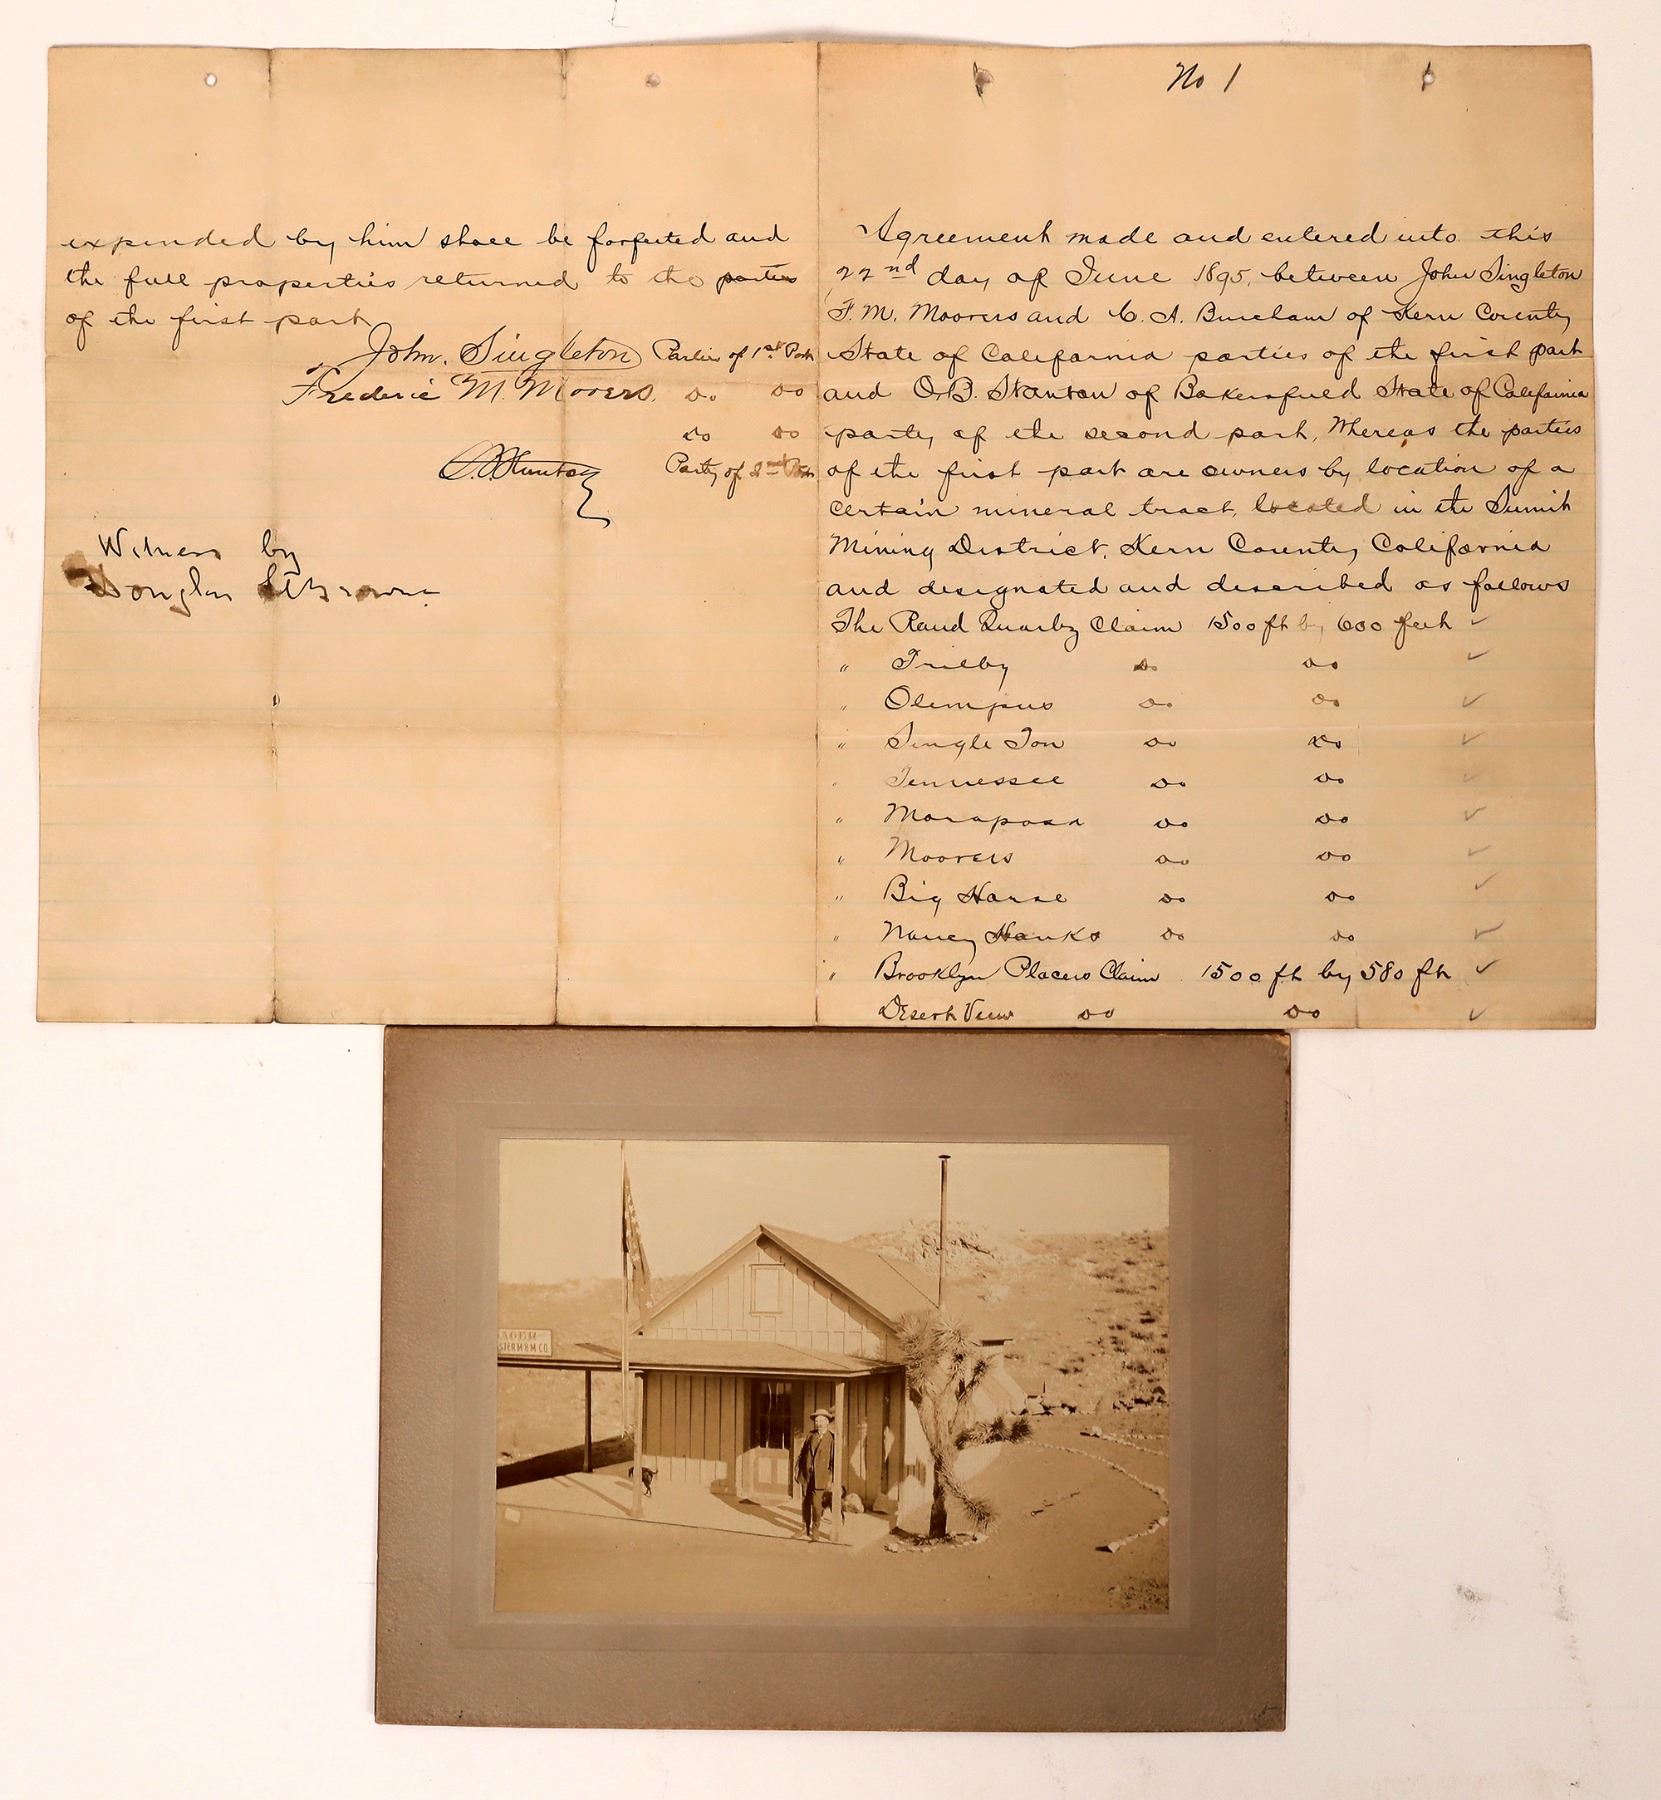 No 1
Agreement made and entered into this
22nd day of June 1895, between John Singleton
F. M. Moorers and C. A. Burcham of Kern County
State of California parties of the first part
and O.B. Stanton of Bakersfield State of California
party of the second part, Whereas the parties
of the first part are owners by location of a
certain mineral tract, located in the Sumit
Mining District, Kern County California
and designated and described as follows
The Rand Quartz Claim 1500 ft by 600 feet ✓
" Trilby Do Do ✓
" Olempus Do Do ✓
" Single Ton Do Do ✓
" Tennessee Do Do ✓
" Maraposa Do Do ✓
" Moorers Do Do ✓
" Big Harse Do Do ✓
" Nancy Hanks Do Do ✓
" Brooklyn Placers Claim 1500 ft by 580 ft ✓
Desert View Do Do ✓
expended by him shall be forfeited and
the full properties returned to the parties
of the first part
John. Singleton Parties of 1st Part
Frederic M. Moorers. Do Do
Do Do
O.B. Stanton Party of 2nd Part
Witness by
Douglas Brown
AGER
STER M & M CO.